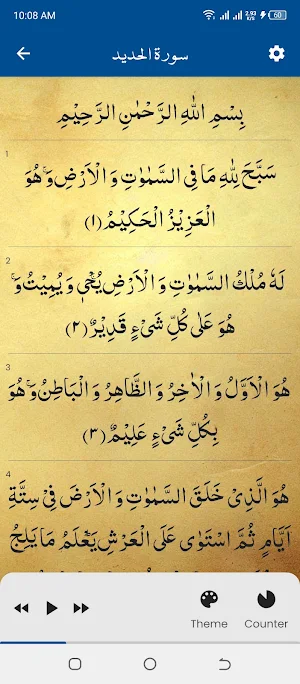 10:08 AM 2.93 K/S 60
سورة الحديد
بِسْمِ اللّٰهِ الرَّحْمٰنِ الرَّحِيْمِ
1
سَبَّحَ لِلّٰهِ مَا فِى السَّمٰوٰتِ وَ الْاَرْضِ ۚ وَ هُوَ
الْعَزِيْزُ الْحَكِيْمُ ﴿۱﴾
2
لَهٗ مُلْكُ السَّمٰوٰتِ وَ الْاَرْضِ ۚ يُحْیٖ وَ يُمِيْتُ ۚ وَ
هُوَ عَلٰى كُلِّ شَیْءٍ قَدِيْرٌ ﴿۲﴾
3
هُوَ الْاَوَّلُ وَ الْاٰخِرُ وَ الظَّاهِرُ وَ الْبَاطِنُ ۚ وَ هُوَ
بِكُلِّ شَیْءٍ عَلِيْمٌ ﴿۳﴾
4
هُوَ الَّذِىْ خَلَقَ السَّمٰوٰتِ وَ الْاَرْضَ فِىْ سِتَّةِ
اَيَّامٍ ثُمَّ اسْتَوٰى عَلَى الْعَرْشِ ؕ يَعْلَمُ مَا يَلِجُ
Theme Counter